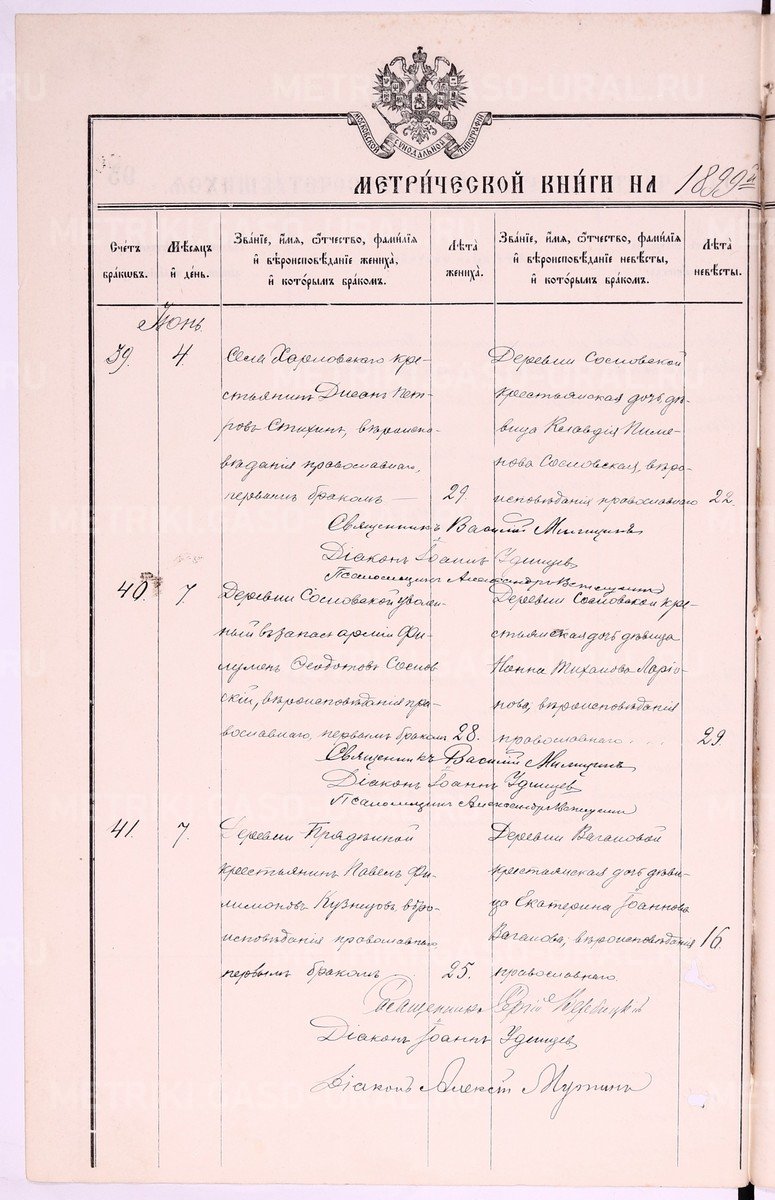 МОСКОВСКОЙ СѴНОДАЛЬНОЙ ТИПОГРАФІИ
МЕТРИ́ЧЕСКОЙ КНИ́ГИ НА 1899й
Счетъ бракѡвъ.
Мѣсяцъ и день.
Зва́нїе, и́мя, ѻ҆́тчество, фами́лїя и҆ вѣроисповѣ́данїе жениха̀, и҆ кото́рымъ бра́комъ.
Лѣта̀ жениха̀.
Зва́нїе, и́мя, ѻ҆́тчество, фами́лїя и҆ вѣроисповѣ́данїе невѣ́сты, и҆ кото́рымъ бра́комъ.
Лѣта̀ невѣ́сты.
Іюнь
39. 4
Села Харловскаго кре-
стьянинъ Пет-
ровъ Стихинъ, вѣроиспо-
вѣданія православнаго,
первымъ бракомъ — 29.
Деревни Сосновской
крестьянская дочь, дѣ-
вица Клавдія Пиме-
нова Сосновская, вѣро-
исповѣданія православнаго 22.
Священникъ Василій
Діаконъ Іоаннъ Удинцев
Псаломщикъ Александръ
40. 7.
Деревни Сосновской уволен-
ный въ запасъ арміи Фи-
лумен Ѳеодотовъ Соснов-
скій, вѣроисповѣданія пра-
вославнаго, первымъ бракомъ 28.
Деревни Сосновской кре-
стьянская дочь дѣвица
Михаилова Ларіо-
нова, вѣроисповѣданія
православнаго. . . . 29.
Священникъ Василій
Діаконъ Іоаннъ Удинцев
Псаломщикъ Александръ
41. 7.
Деревни Прядѣиной
крестьянинъ Павелъ Фи-
лимоновъ Кузнецовъ, вѣро-
исповѣданія православнаго,
первымъ бракомъ . . 25.
Деревни Вагановой
крестьянская дочь дѣви-
ца Екатерина Іоаннова
Ваганова, вѣроисповѣданія 16.
православнаго.
Священникъ Сергій
Діаконъ Іоаннъ Удинцев
Діаконъ Алексій
METRIKI.GASO-URAL.RU